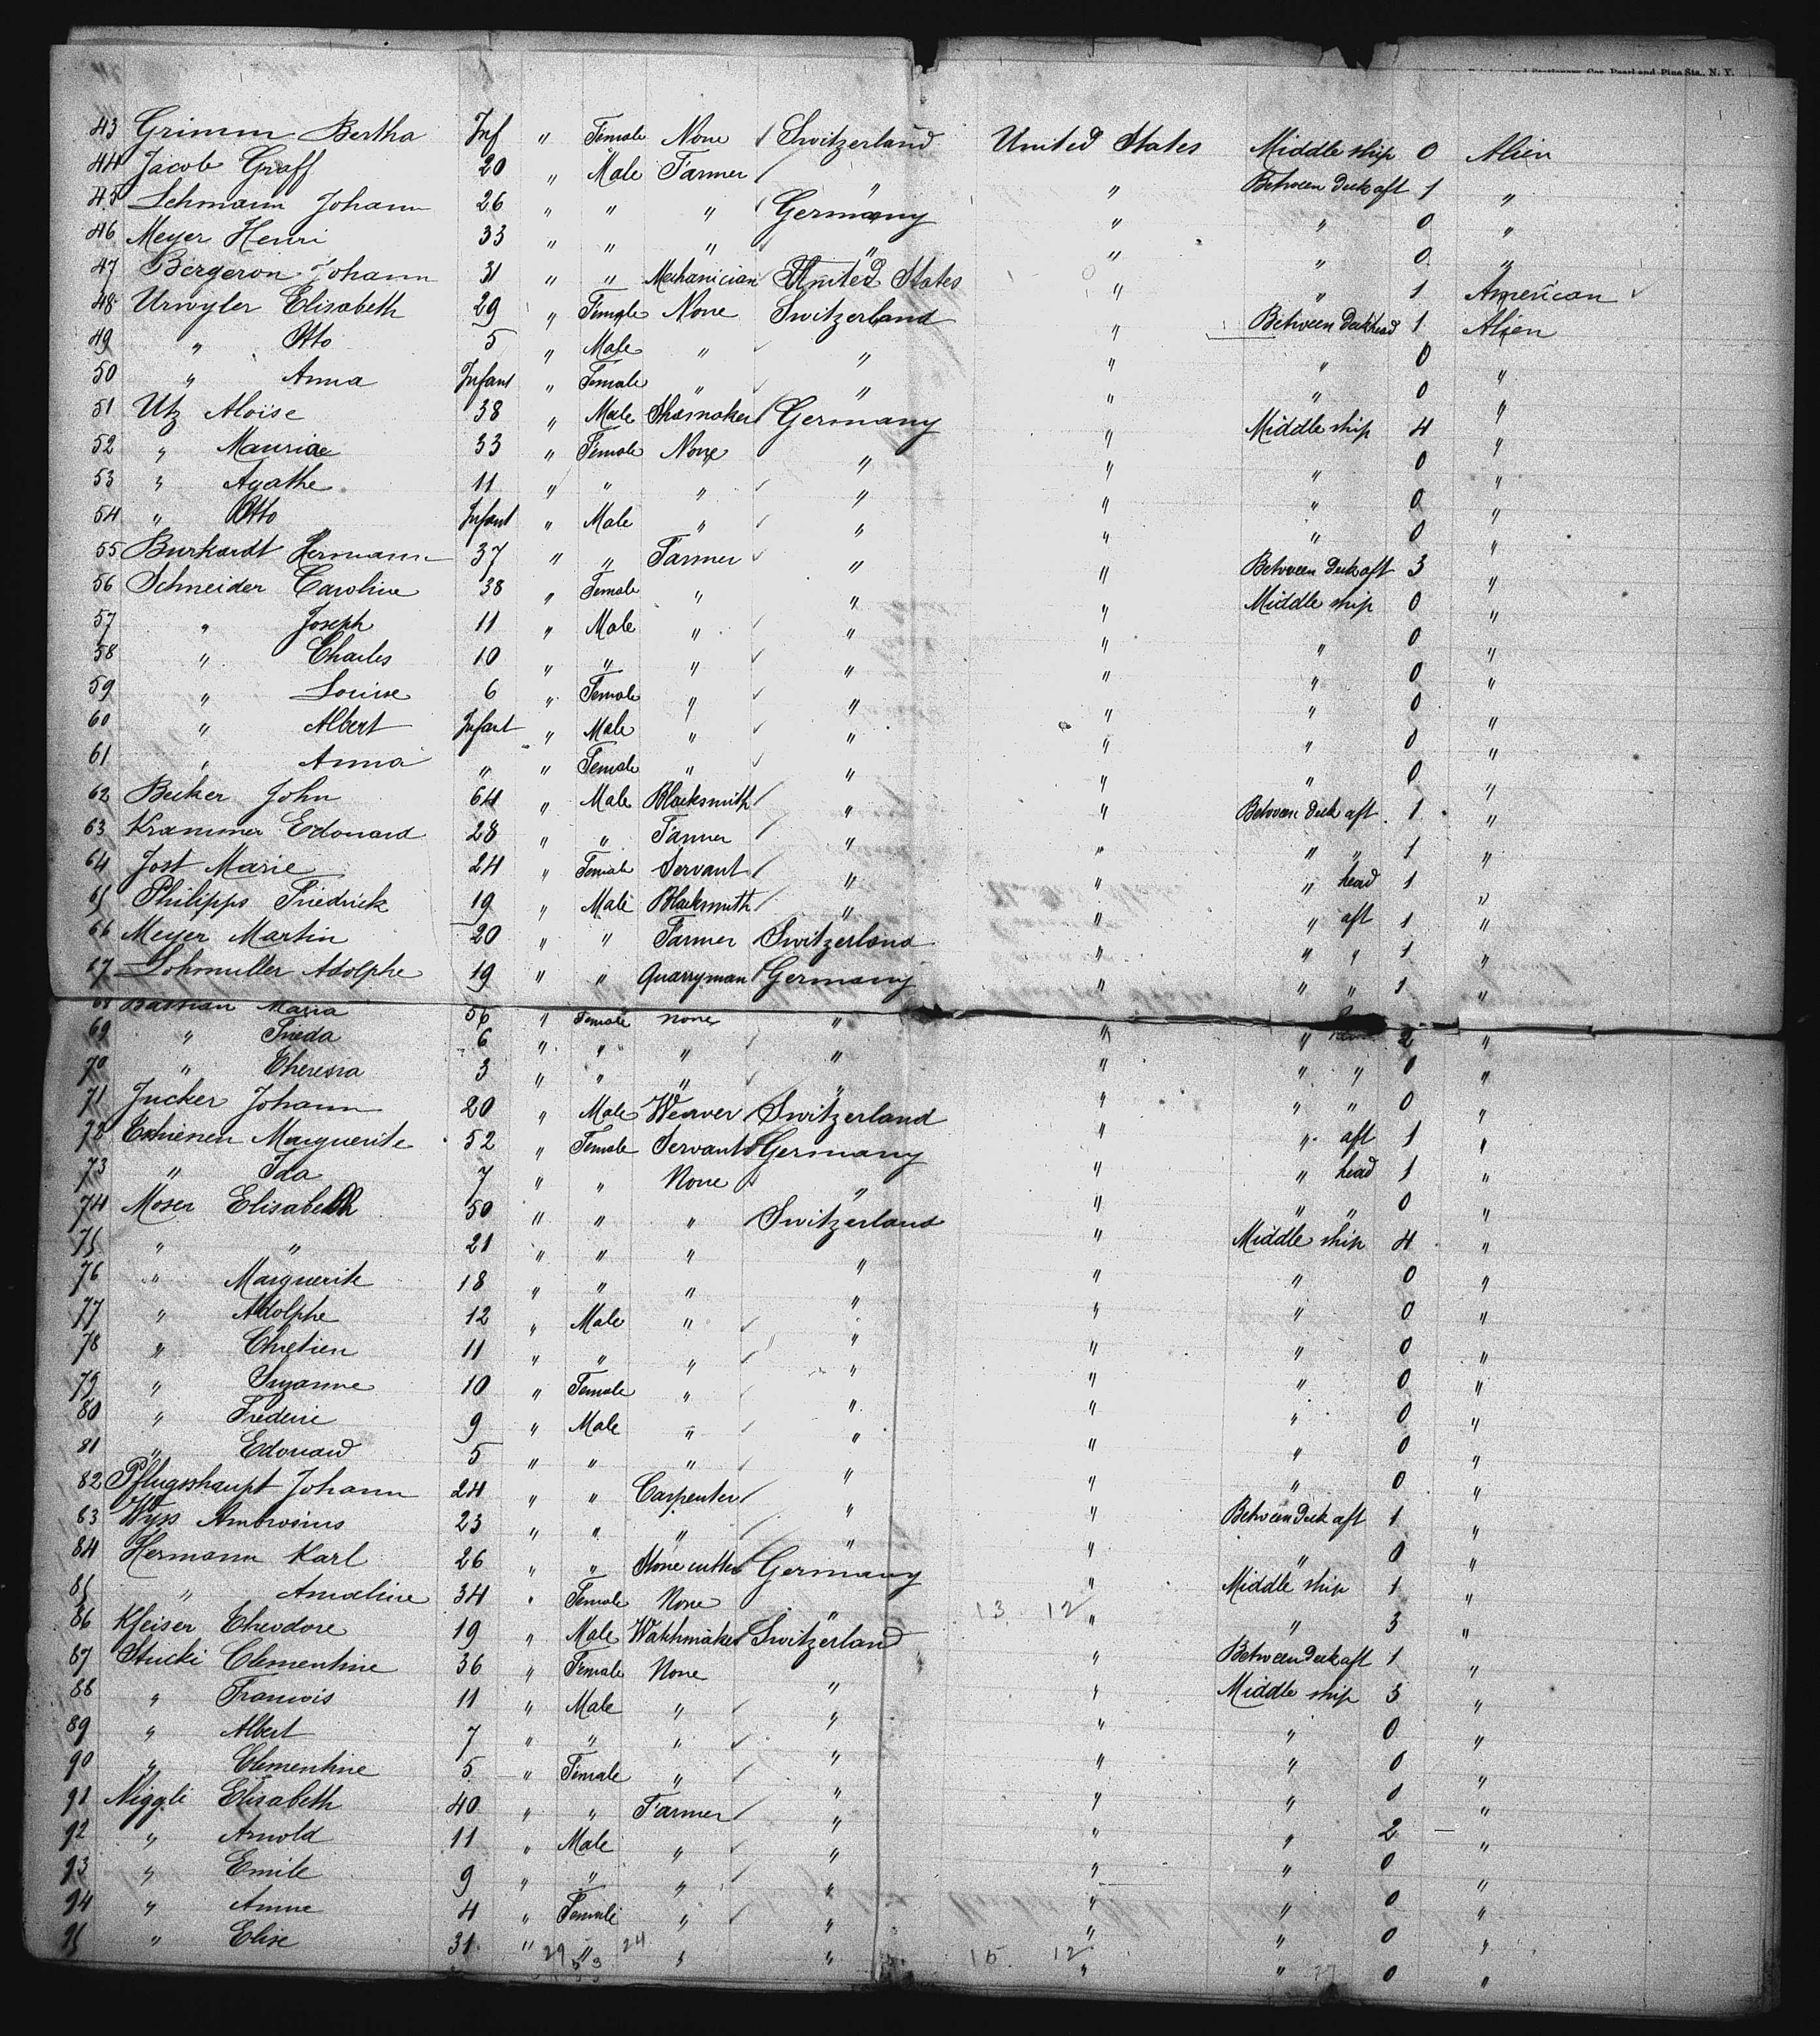 Printing and Stationery Co., Pearl and Pine Sts., N. Y.
43 Grimm Bertha Inf " Female None Switzerland United States Middle ship 0 Alien
44 Jacob Graff 20 " Male Farmer " " Between deck aft 1 "
45 Lehmann Johann 26 " " " Germany " " 0 "
46 Meyer Henri 33 " " " " " " 0 "
47 Bergeron Johann 31 " " Mechanician United States " " 1 American
48 Urwyler Elisabeth 29 " Female None Switzerland " Between deck head 1 Alien
49 " Otto 5 " Male " " " " 0 "
50 " Anna Infant " Female " " " " 0 "
51 Utz Aloïse 38 " Male Shoemaker Germany " Middle ship 4 "
52 " Mauriae 33 " Female None " " " 0 "
53 " Agathe 11 " " " " " " 0 "
54 " Otto Infant " Male " " " " 0 "
55 Burkardt Hermann 37 " " Farmer " " Between deck aft 3 "
56 Schneider Caroline 38 " Female " " " Middle ship 0 "
57 " Joseph 11 " Male " " " " 0 "
58 " Charles 10 " " " " " " 0 "
59 " Louise 6 " Female " " " " 0 "
60 " Albert Infant " Male " " " " 0 "
61 " Anna " " Female " " " " 0 "
62 Becker John 64 " Male Blacksmith " " Between deck aft 1 "
63 Krammer Edouard 28 " " Farmer " " " " 1 "
64 Jost Marie 24 " Female Servant " " " head 1 "
65 Philipps Friedrick 19 " Male Blacksmith " " " aft 1 "
66 Meyer Martin 20 " " Farmer Switzerland " " " 1 "
67 Lohmuller Adolphe 19 " " Quarryman Germany " " " 1 "
68 Bastian Maria 56 " Female none " " " head 2 "
69 " Frieda 6 " " " " " " " 0 "
70 " Theresia 3 " " " " " " " 0 "
71 Jucker Johann 20 " Male Weaver Switzerland " " aft 1 "
72 Marguerite 52 " Female Servant Germany " " head 1 "
73 " Ida 7 " " None " " " " 0 "
74 Moser Elisabeth 50 " " " Switzerland " Middle ship 4 "
75 " " 21 " " " " " " 0 "
76 " Marguerite 18 " " " " " " 0 "
77 " Adolphe 12 " Male " " " " 0 "
78 " Chretien 11 " " " " " " 0 "
79 " Suzanne 10 " Female " " " " 0 "
80 " Frederic 9 " Male " " " " 0 "
81 " Edouard 5 " " " " " " 0 "
82 Pflugshaupt Johann 24 " " Carpenter " " Between deck aft 1 "
83 Wyss Ambrosius 23 " " " " " " 0 "
84 Hermann Karl 26 " " Stone cutter Germany " Middle ship 1 "
85 " Amaline 34 " Female None " 13 12 " " 3 "
86 Kfeiser Theodore 19 " Male Watchmaker Switzerland " Between deck aft 1 "
87 Stucki Clementine 36 " Female None " " Middle ship 3 "
88 " Francois 11 " Male " " " " 0 "
89 " Albert 7 " " " " " " 0 "
90 " Clementine 5 " Female " " " " 0 "
91 Niggli Elisabeth 40 " " Farmer " " " 2 "
92 " Arnold 11 " Male " " " " 0 "
93 " Emile 9 " " " " " " 0 "
94 " Anna 4 " Female " " " " 0 "
95 " Elise 31 " 29 " 24 " " 15 12 " " 0 "